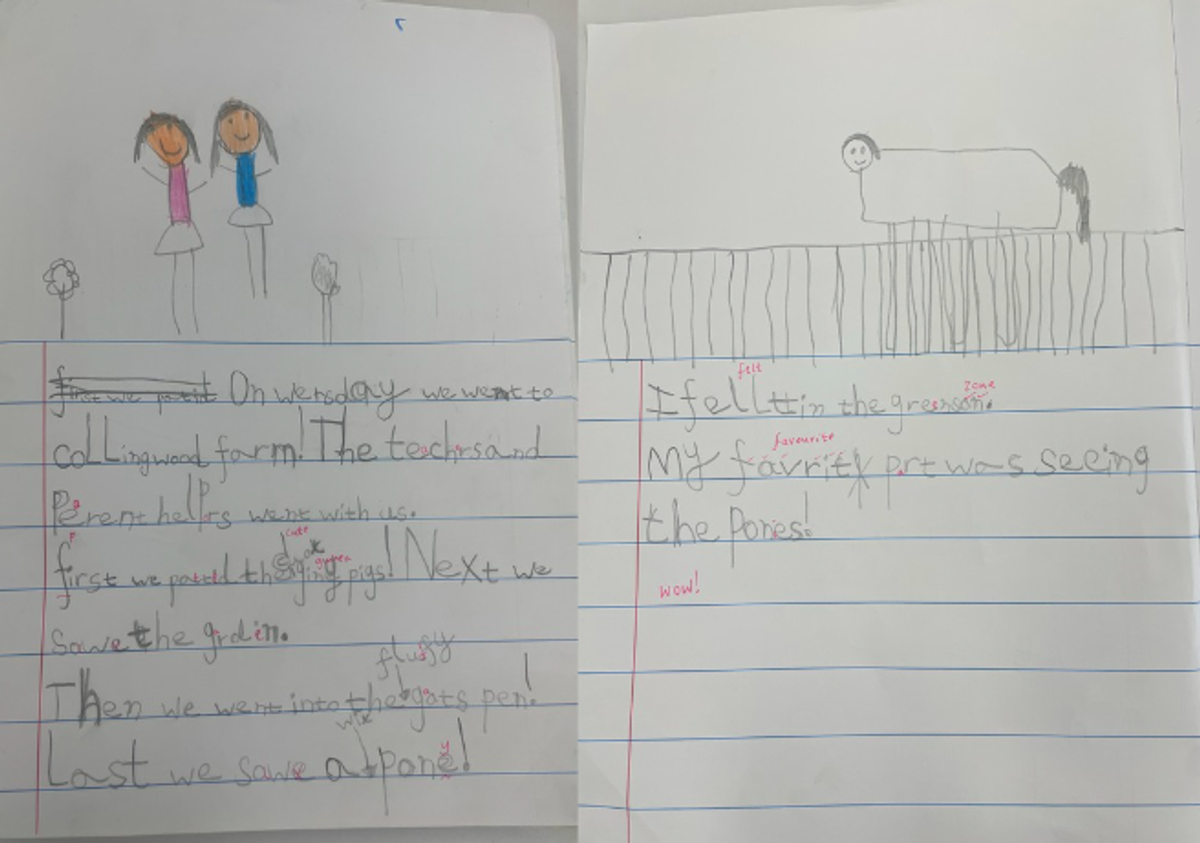 first we patid On wensday we went to
collingwood farm! The techrs and
Perent helprs went with us.
cute
First we patted the guinea pigs! Next we
sawe the grden.
fluffy
Then we went into the gots pen!
Last we sawe a pone!
y
felt
zone
I fellt in the greanson.
favourite
My favrity prt was seeing
the Pones!
wow!